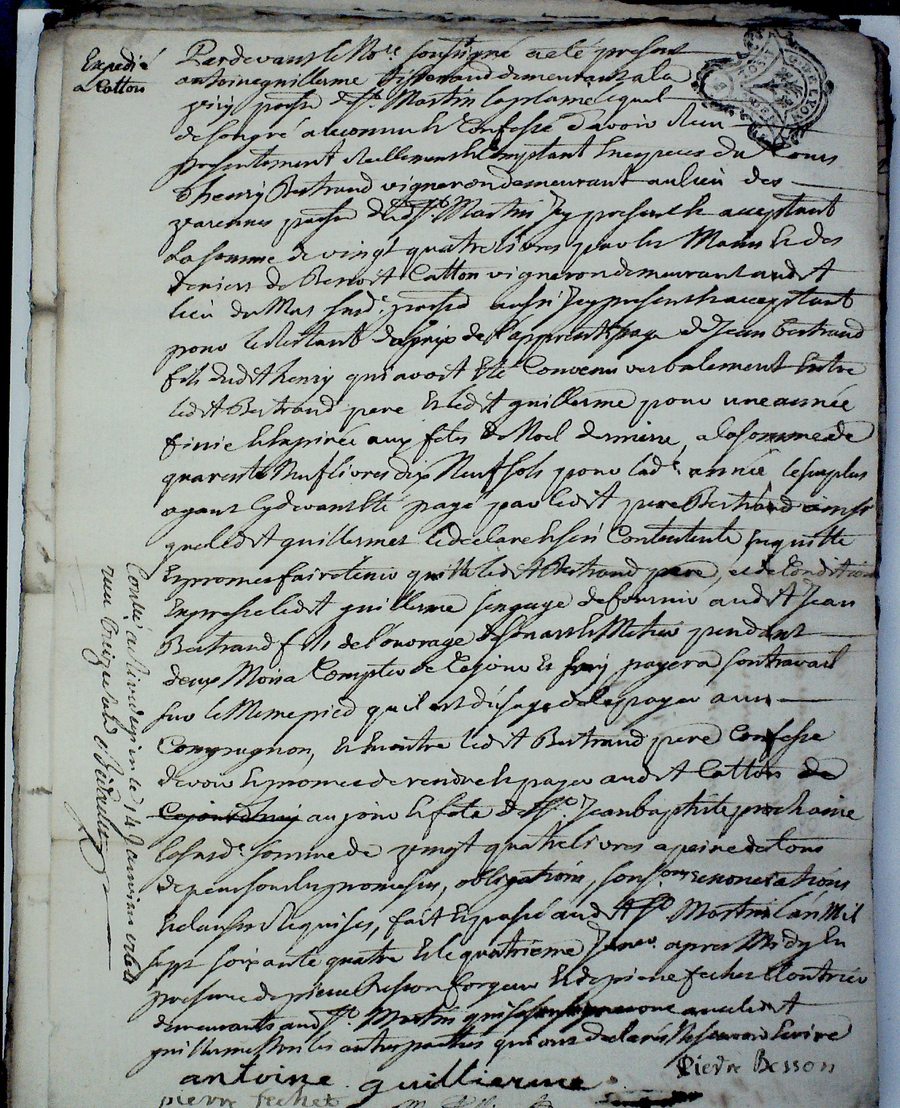 Expedié
a Catton
Pardevant le No.re soussigné a eté present
antoine guillerme tisserand demeurant a la
parsse de St. Martin laplaine lequel
de son gré a reconnu et Confessé d'avoir Reçu
presentement reellement et Comptant en especes du Cours
d'henry Bertrand vigneron demeurant au lieu des
varennes parsse dud. St. Martin Icy present et acceptant
la somme de vingt quatre livres par les Mains et des
deniers de Benoit Catton vigneron demeurant audit
lieu du Mas susd.e parsse aussi Icy present et acceptant
pour le restant du prix de l'apprentissage de Jean Bertrand
fils dudit henry qui avoit été Convenu verbalement Entre
ledit Bertrand pere et ledit guillerme pour une année
finie et expirée aux fetes de Noel derniere, a la somme de
quarente Neuf livres dix Neuf sols pour lad.e année le surplus
ayant cy devant été payé par ledit pere Bertrand ainsi
que ledit guillermet le declare et s'en Contente, en quitte
et promet faire tenir quitte ledit Bertrand pere, et de Condition
Expresse ledit guillerme s'engage de fournir audit Jean
Bertrand fils de l'ouvrage de son art et Metier pendant
deux Mois a Compter de ce jour et luy payera son travail
sur le Meme pied qu'il est d'usage de le payer a un
Compagnon, et en outre ledit Bertrand pere Confesse
devoir et promet de rendre et payer audit Catton de
Cejourdhuy au jour et fete de St. Jean baptiste prochaine
la susd.e somme de vingt quatre livres a peine de tous
depens sous les promesses, obligations, soumissions renonciations
et clauses requises, fait et passé audit St. Martin l'an Mil
sept soixante quatre et le quatrieme Janv.er apres Midy En
presence de pierre Besson forgeur et de pierre fechet
demeurants audit St. Martin qui avec ledit
guillerme non les autres parties qui ont declaré Ne sçavoir Ecrire
antoine guillierme Pierre Besson
pierre fechet
Contr.é a Rivedegier le 14 Janvier 1764
reçu treize sols